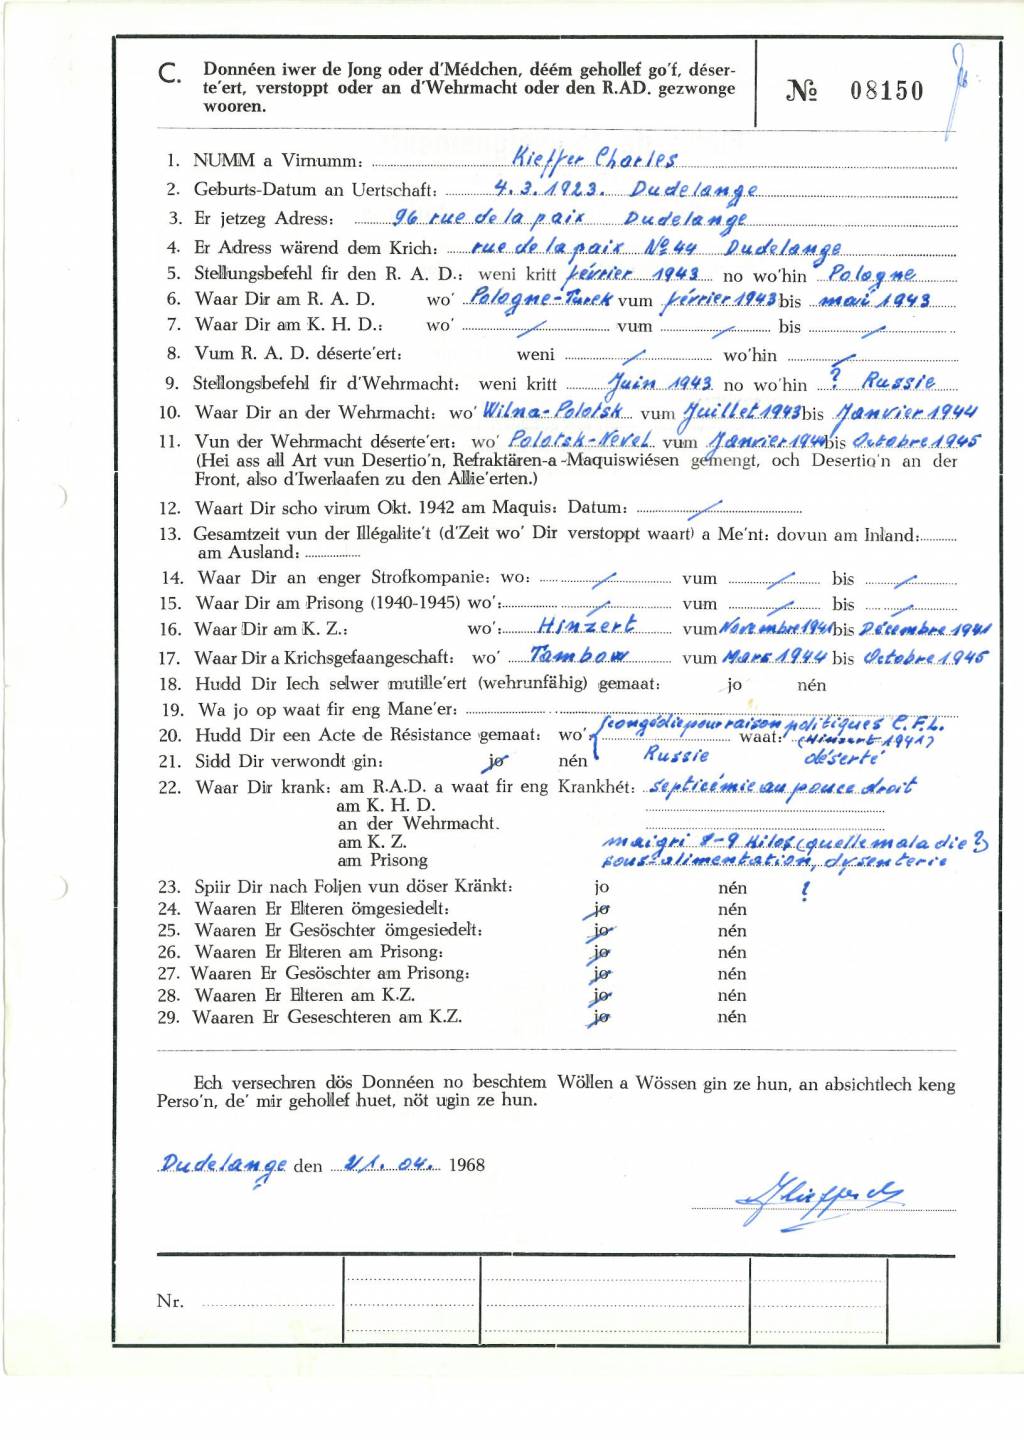 C. Donnéen iwer de Jong oder d'Médchen, déém gehollef go'f, déser-
te'ert, verstoppt oder an d'Wehrmacht oder den R.AD. gezwonge
wooren.
№ 08150
1. NUMM a Virnumm: Kieffer Charles
2. Geburts-Datum an Uertschaft: 4.3.1923. Dudelange
3. Er jetzeg Adress: 96 rue de la paix Dudelange
4. Er Adress wärend dem Krich: rue de la paix No 44 Dudelange
5. Stellungsbefehl fir den R. A. D.: weni kritt février 1943 no wo'hin Pologne
6. Waar Dir am R. A. D. wo' Pologne-Turek vum février 1943 bis mai 1943
7. Waar Dir am K. H. D.: wo' / vum / bis /
8. Vum R. A. D. déserte'ert: weni / wo'hin /
9. Stellongsbefehl fir d'Wehrmacht: weni kritt Juin 1943 no wo'hin ? Russie
10. Waar Dir an der Wehrmacht: wo' Wilna-Polotsk vum Juillet 1943 bis Janvier 1944
11. Vun der Wehrmacht déserte'ert: wo' Polotsk-Nevel vum Janvier 1944 bis Octobre 1945
(Hei ass all Art vun Desertio'n, Refraktären-a-Maquiswiésen gemengt, och Desertio'n an der
Front, also d'Iwerlaafen zu den Allie'erten.)
12. Waart Dir scho virum Okt. 1942 am Maquis: Datum: /
13. Gesamtzeit vun der Illégalite't (d'Zeit wo' Dir verstoppt waart) a Me'nt: dovun am Inland:
am Ausland:
14. Waar Dir an enger Strofkompanie: wo: / vum / bis /
15. Waar Dir am Prisong (1940-1945) wo': / vum / bis /
16. Waar Dir am K. Z.: wo': Hinzert vum Novembre 1941 bis Décembre 1941
17. Waar Dir a Krichsgefaangeschaft: wo' Tambow vum Mars 1944 bis Octobre 1945
18. Hudd Dir Iech selwer mutille'ert (wehrunfähig) gemaat: jo nén
19. Wa jo op waat fir eng Mane'er:
congédié pour raison politiques C.F.L.
20. Hudd Dir een Acte de Résistance gemaat: wo' waat: (Hinzert 1941)
21. Sidd Dir verwondt gin: jo nén Russie déserté
22. Waar Dir krank: am R.A.D. a waat fir eng Krankhét: septicémie au pouce droit
am K. H. D.
an der Wehrmacht.
am K. Z. maigri 8-9 Kilos (quelle maladie?)
am Prisong sous-alimentation, dysenterie
23. Spiir Dir nach Foljen vun döser Kränkt: jo nén ?
24. Waaren Er Elteren ömgesiedelt: jo nén
25. Waaren Er Gesöschter ömgesiedelt: jo nén
26. Waaren Er Elteren am Prisong: jo nén
27. Waaren Er Gesöschter am Prisong: jo nén
28. Waaren Er Elteren am K.Z. jo nén
29. Waaren Er Geseschteren am K.Z. jo nén
Ech versechren dös Donnéen no beschtem Wöllen a Wössen gin ze hun, an absichtlech keng
Perso'n, de' mir gehollef huet, nöt ugin ze hun.
Dudelange den 21.04. 1968
Kieffer Ch
Nr.